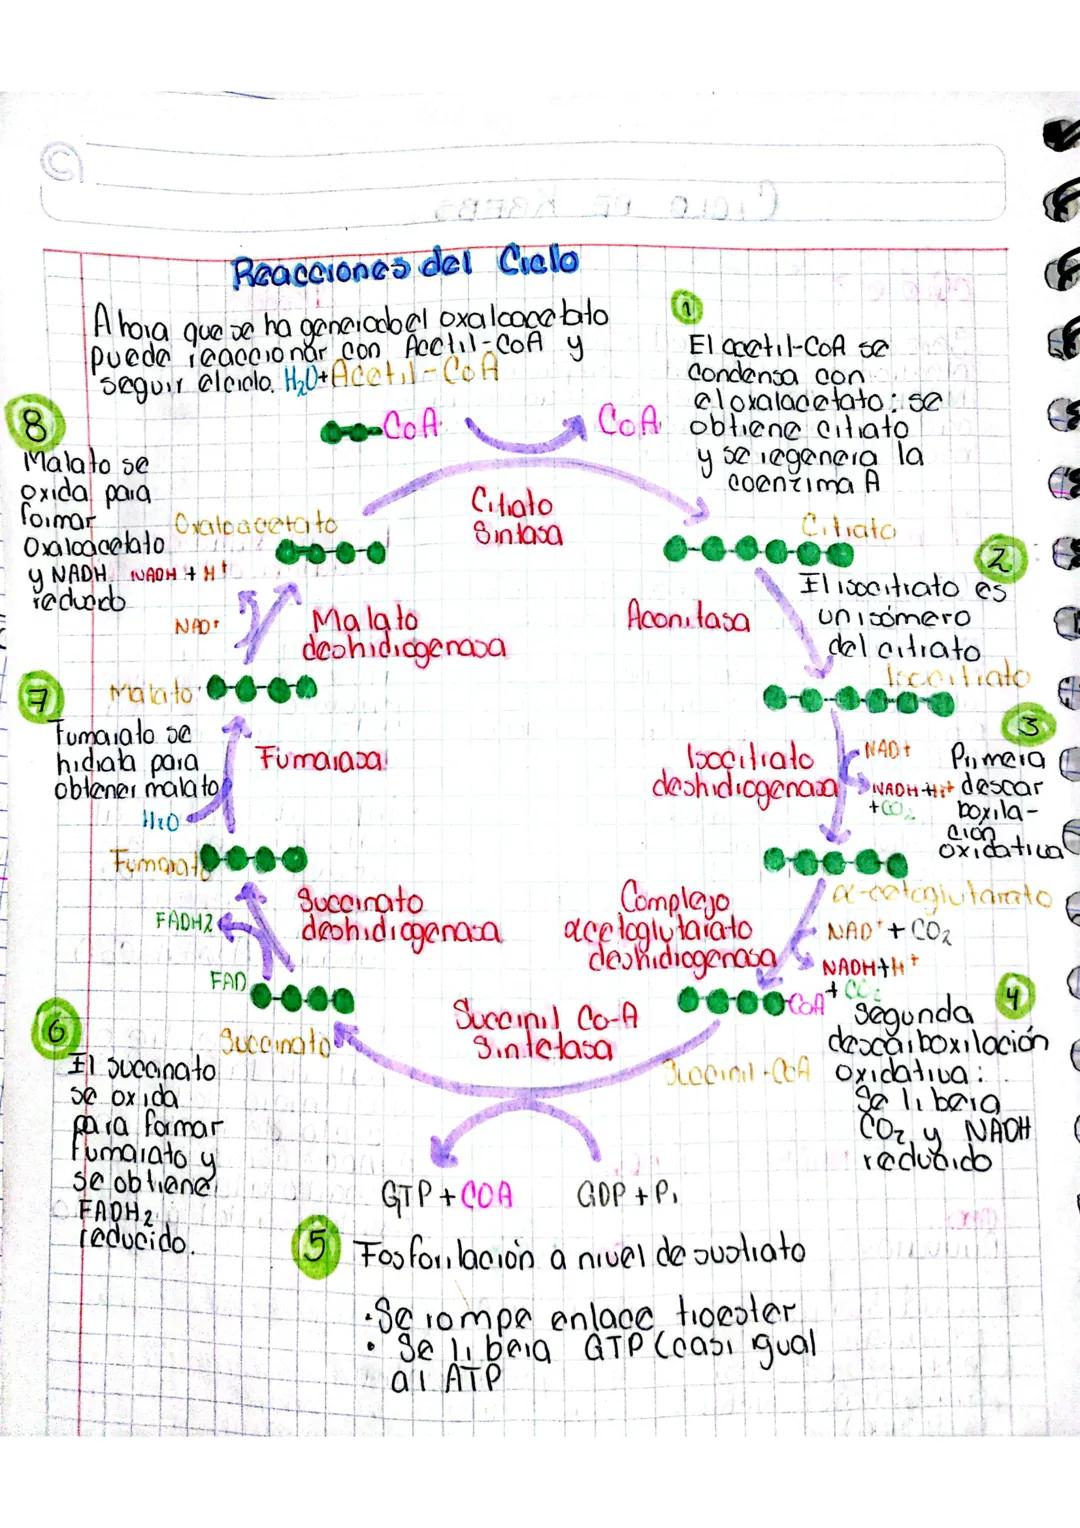 Reacciones del Ciclo
Ahora que se ha generado el oxaloacetato
puede reaccionar con Acetil-CoA y
seguir el ciclo. H₂O+Acetil-CoA
1
El acetil-CoA se
condensa con
el oxalacetato: se
obtiene citrato
y se regenera la
coenzima A
CoA
CoA
Citrato
Sintasa
8
Malato se
oxida para
formar
Oxaloacetato
y NADH
reducido
Oxaloacetato
NADH + H+
NAD+
Malato
deshidrogenasa
Citrato
2
El isocitrato es
un isómero
del citrato
Aconitasa
Isocitrato
7
Malato
Fumarato se
hidrata para
obtener malato
H₂O
Fumarasa
3
Primera
descar
boxila-
ción
oxidativa
Isocitrato
deshidrogenasa
NAD+
NADH+H+
+CO₂
Fumarato
Succinato
deshidrogenasa
FADH2
FAD
α-cetoglutarato
Complejo
acetoglutarato
deshidrogenasa
NAD+ + CO₂
NADH+H+
+ CO₂
CoA
4
Segunda
descarboxilación
oxidativa:
Se libera
CO₂ y NADH
reducido
Succinil Co-A
Sintetasa
Succinil-CoA
Succinato
6
El succinato
se oxida
para formar
Fumarato y
se obtiene
FADH₂
reducido.
GTP + COA
GDP + Pi
5
Fosforilación a nivel de sustrato
• Se rompe enlace tioester
• Se libera GTP (casi igual
al ATP